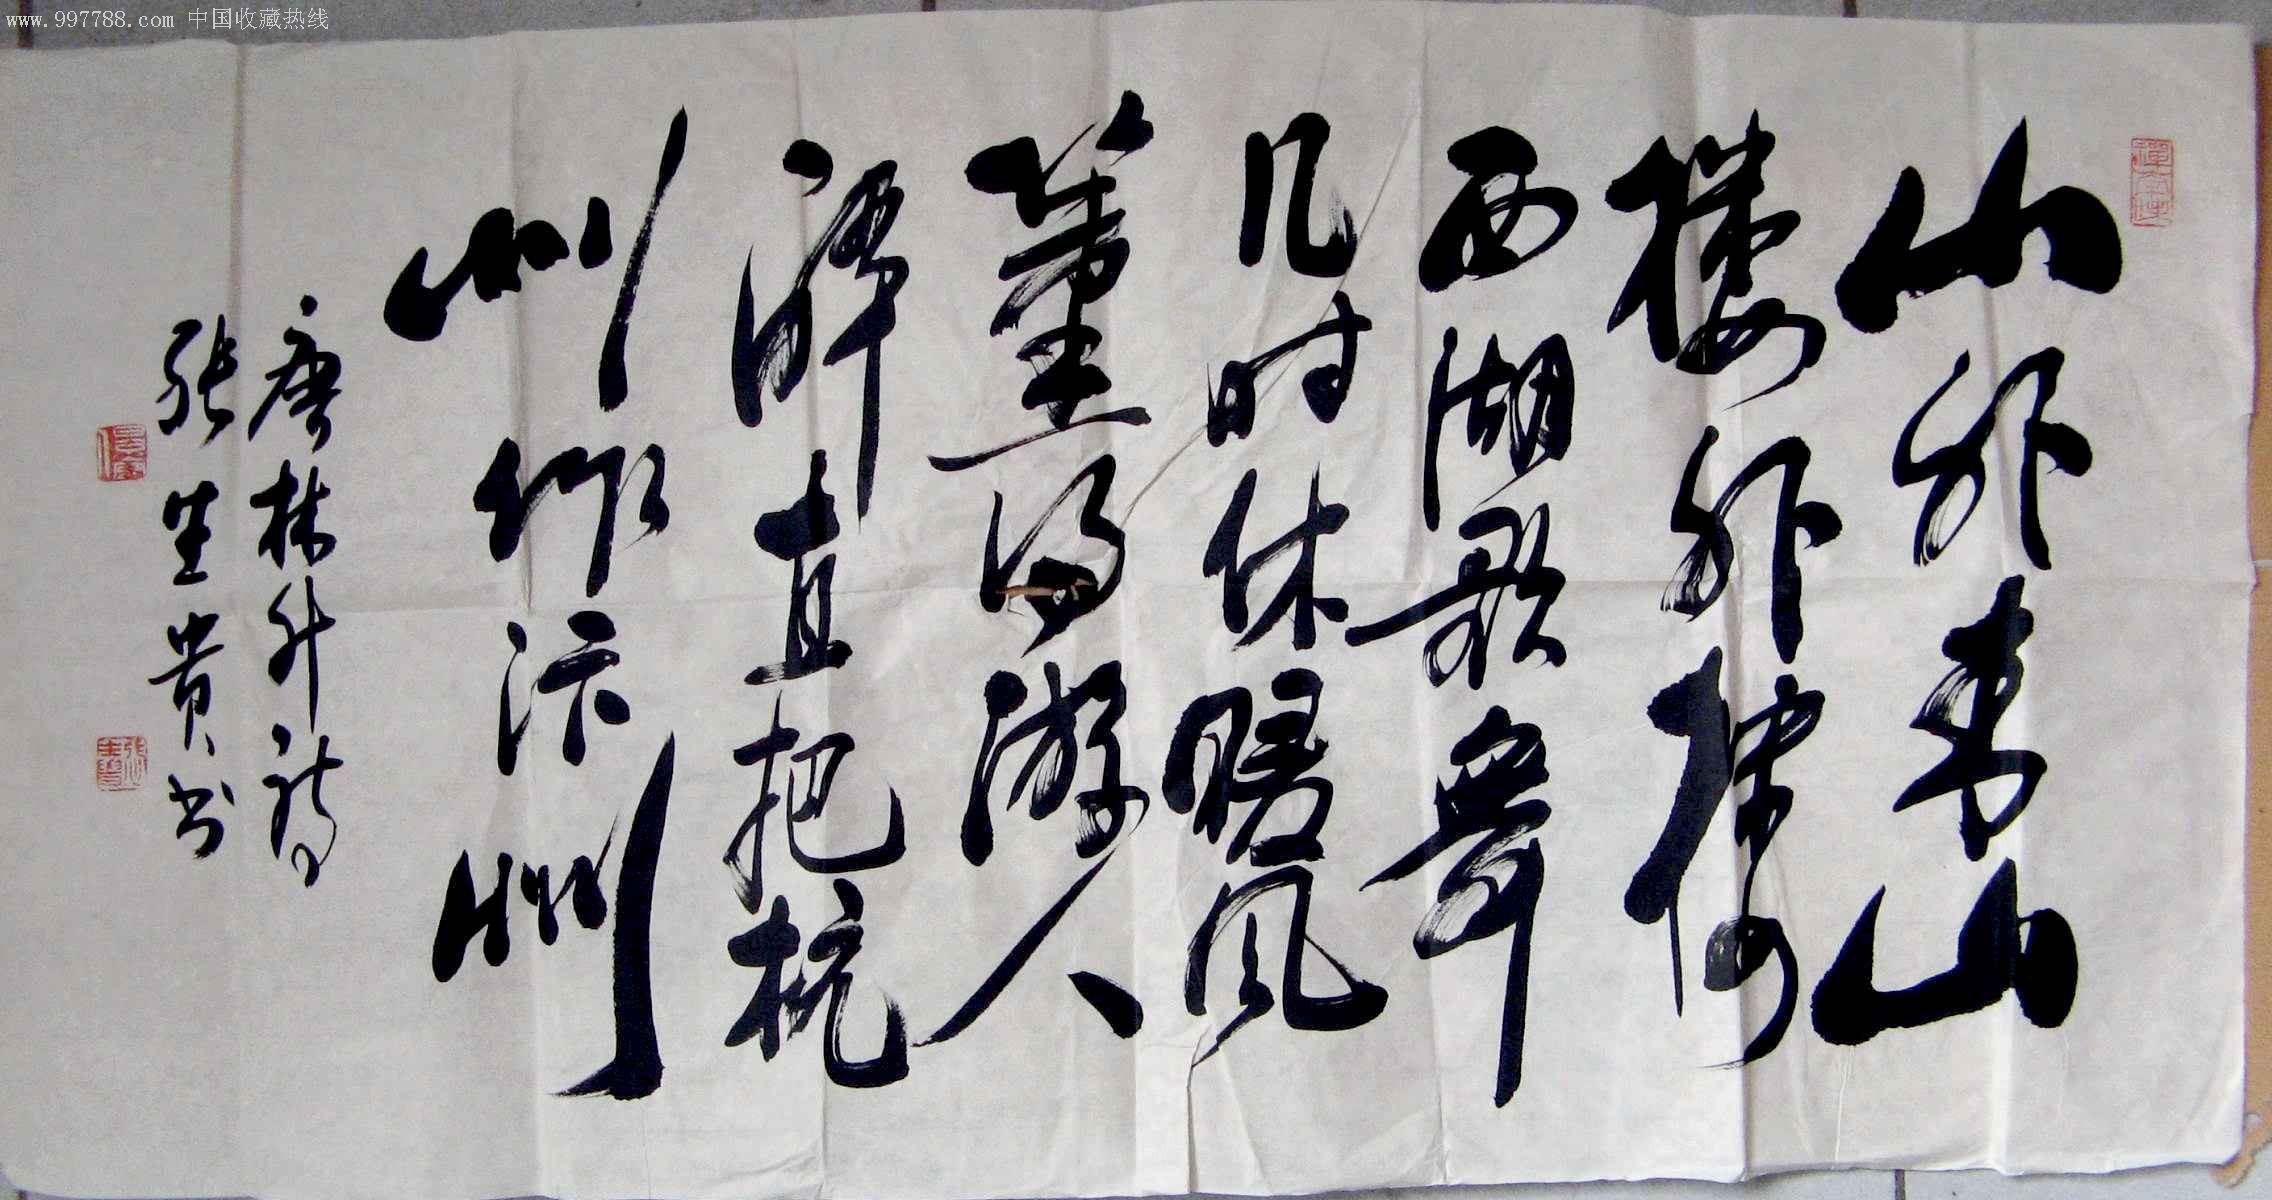 www.997788.com 中国收藏热线
山外青山
楼外楼
西湖歌舞
几时休暖风
薰得游人
醉直把杭
州作汴州
唐林升诗
张生贵书